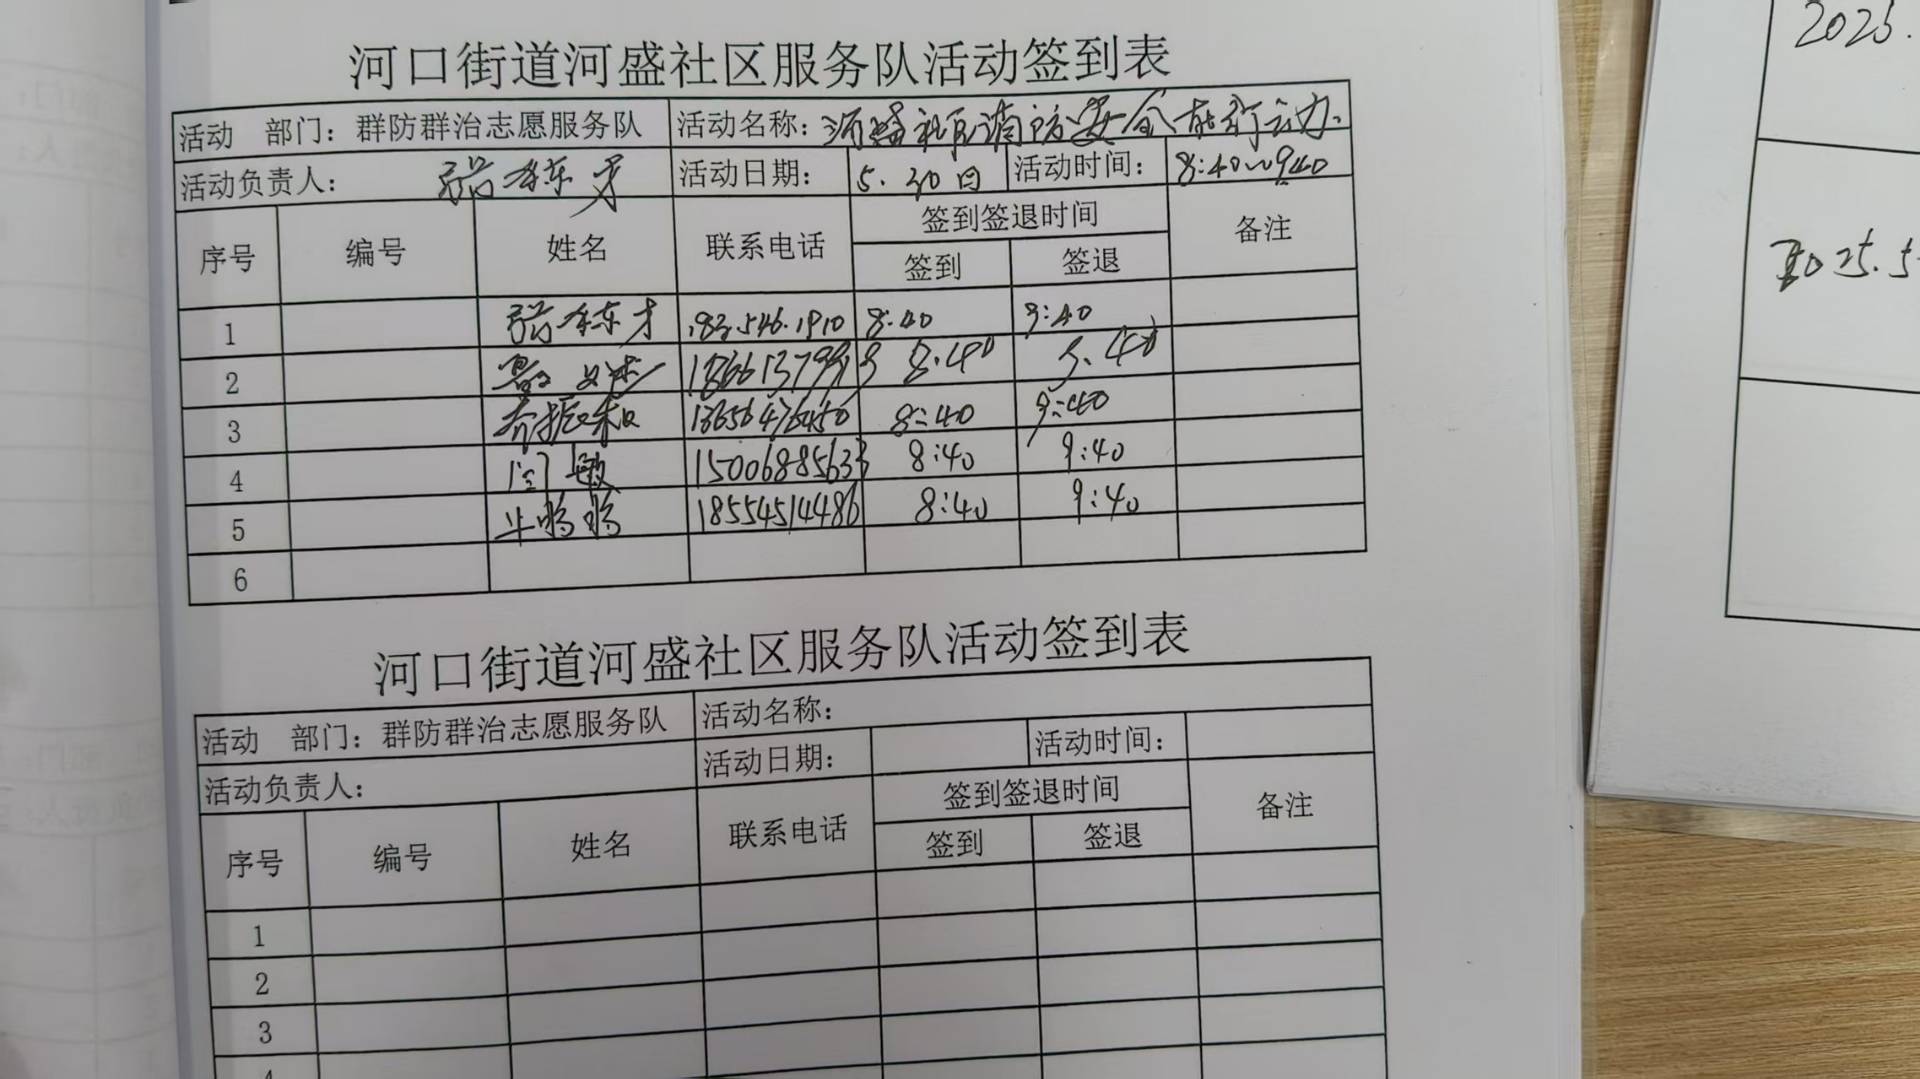 河口街道河盛社区服务队活动签到表
活动 部门：群防群治志愿服务队 活动名称：河盛社区消防安全在行动.
活动负责人： 活动日期： 5.30日 活动时间： 8:40~9:40
序号 编号 姓名 联系电话 签到签退时间 备注
签到 签退
1 8:40 9:40
2 8:40 9:40
3 13656476450 8:40 9:40
4 闫敏 15006885633 8:40 9:40
5 18554514486 8:40 9:40
6
河口街道河盛社区服务队活动签到表
活动 部门：群防群治志愿服务队 活动名称：
活动负责人： 活动日期： 活动时间：
序号 编号 姓名 联系电话 签到签退时间 备注
签到 签退
1
2
3
4
2025.
2025.5